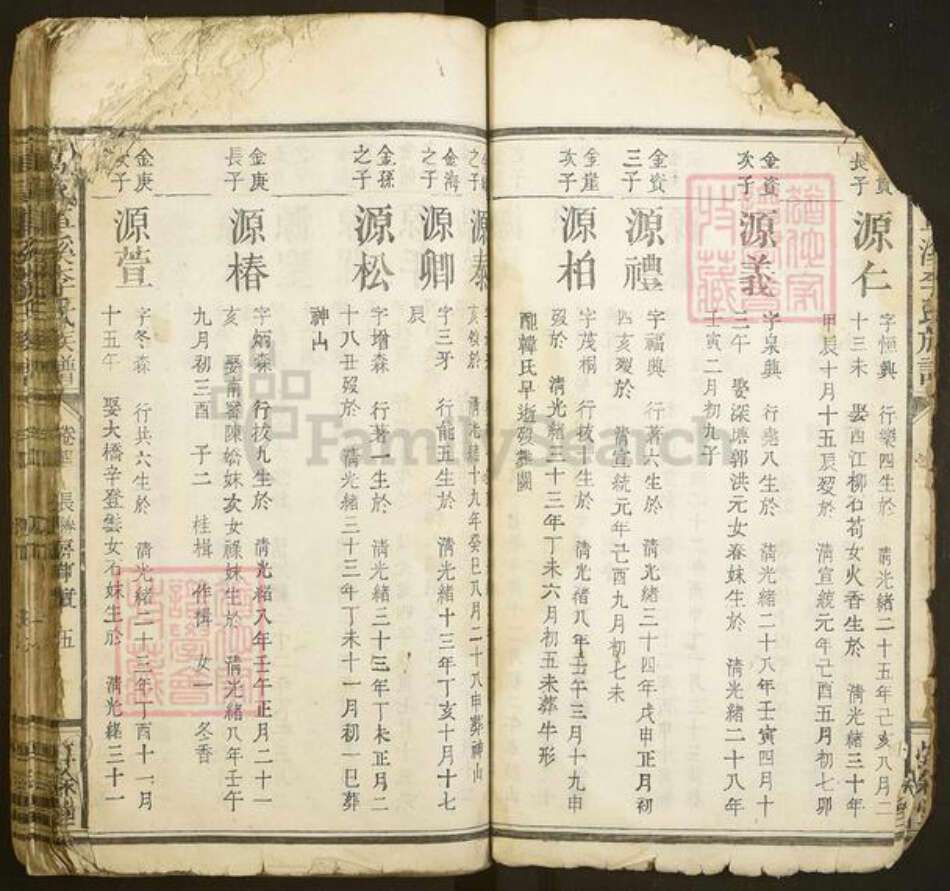 長子
源仁
字恒興 行樂四生於 清光緒二十五年己亥八月二
十三未 娶西江柳石荀女火香生於 清光緒三十年
甲辰十月十五辰歿於 清宣統元年己酉五月初七卯
金資
次子
源義
字泉興 行堯八生於 清光緒二十八年壬寅四月十
三午 娶深塘郭洪元女春妹生於 清光緒二十八年
壬寅二月初九子
金資
三子
源禮
字福興 行著六生於 清光緒三十四年戊申正月初
四亥歿於 清宣統元年己酉九月初七未
金崖
次子
源柏
字茂桐 行拔十生於 清光緒八年壬午三月十九申
歿於 清光緒三十三年丁未六月初五未葬牛形
配韓氏早逝歿
之子
源泰
亥歿於 清光緒十九年癸巳八月二十八申葬神山
金海
之子
源卿
字三牙 行能五生於 清光緒十三年丁亥十月十七
辰
金孫
之子
源松
字增森 行著一生於 清光緒三十三年丁未正月二
十八丑歿於 清光緒三十三年丁未十一月初一巳葬
神山
金庚
長子
源椿
字炳森 行拔九生於 清光緒八年壬午正月二十一
亥 娶南 陳 妹次女祿妹生於 清光緒八年壬午
九月初三酉 子二 桂楫 作楫 女一 冬香
金庚
次子
源萱
字冬森 行共六生於 清光緒二十三年丁酉十一月
十五午 娶大橋辛登雲女石妹生於 清光緒三十一
族譜 卷 長 房 五
FamilySearch